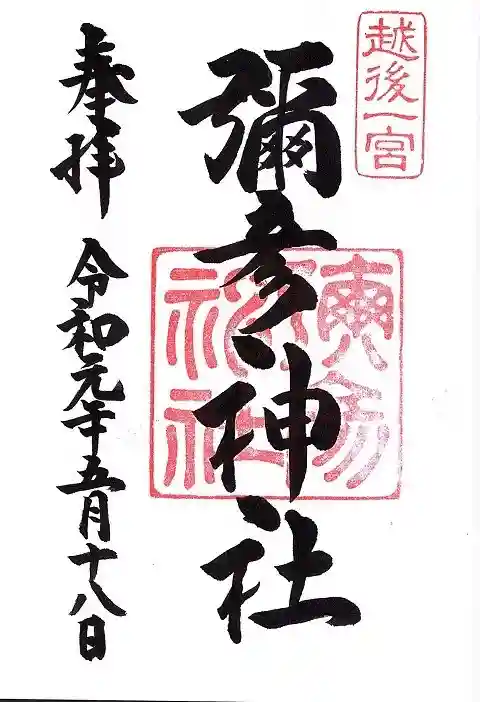 越後一宮
彌彦神社
奉拝
令和元年五月十八日